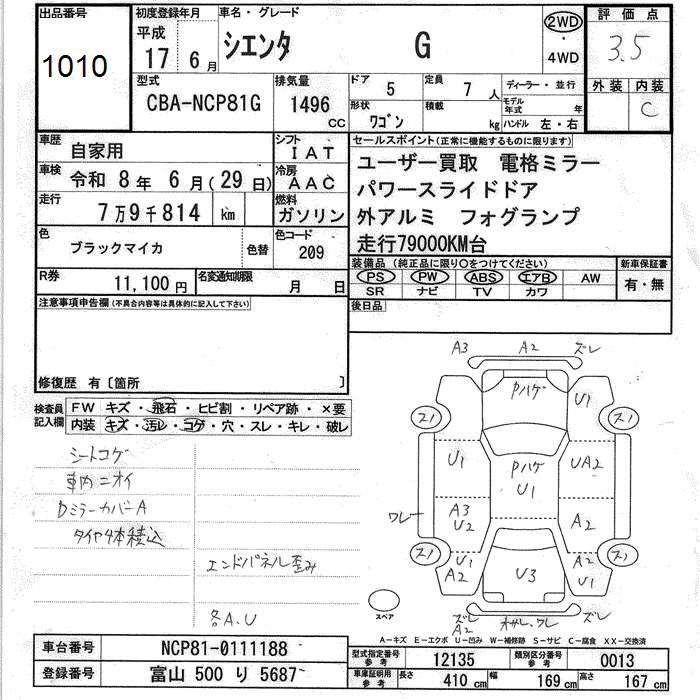 出品番号
1010
初度登録年月
平成
17年 6月
車名・グレード
シエンタ G
2WD
・
4WD
評価点
3.5
外装 内装
C
型式
CBA-NCP81G
排気量
1496
CC
ドア 5
定員 7人
形状 ワゴン
積載 kg
ディーラー・並行
モデル年式 年
ハンドル 左・右
車歴 自家用
シフト IAT
車検 令和 8年 6月(29日)
冷房 AAC
走行 7万9千814 km
燃料 ガソリン
色 ブラックマイカ 色替
色コード 209
R券 11,100円
名変通知期限 月 日
セールスポイント(正常に機能するものに限ります)
ユーザー買取 電格ミラー
パワースライドドア
外アルミ フォグランプ
走行79000KM台
装備品 (純正品に限り○をつけてください)
新車保証書
PS PW ABS エアB AW
SR ナビ TV カワ
有・無
後日品
注意事項申告欄(不具合内容等は具体的に記入して下さい)
修復歴 有〔箇所 〕
検査員記入欄
FW キズ・飛石・ヒビ割・リペア跡・×要
内装 キズ・汚レ・コゲ・穴・スレ・キレ・破レ
シートコゲ
車内ニオイ
DミラーカバーA
タイヤ4本積込
エンドパネル歪み
各A.U
A3 A2 ズレ
Pハゲ
U1
スノ スノ
U1 Pハゲ U1 UA2
ワレー A3 U2 A2
スノ U1 A2 U3 A2 U1 スノ
スペア
ズレ A2 ズレ
A-キズ E-エクボ U-凹み W-補修跡 S-サビ C-腐食 XX-交換済
車台番号 NCP81-0111188
登録番号 富山 500 り 5687
型式指定番号 参考 12135
類別区分番号 参考 0013
車庫証明用 参考 長さ 410 cm 幅 169 cm 高さ 167 cm